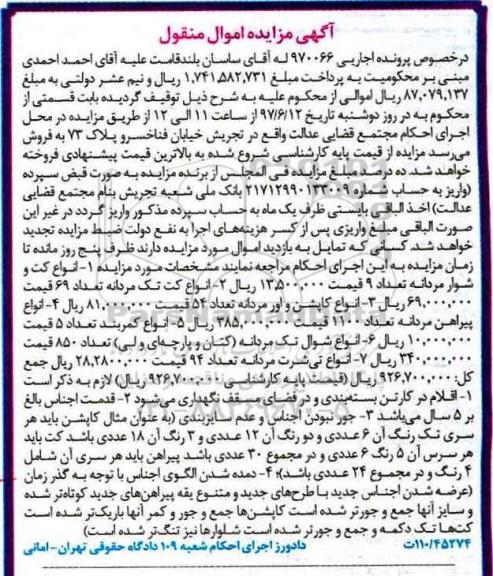 آگهی مزایده اموال منقول
درخصوص پرونده اجرایی ۹۷۰۰۶۶ له آقای ساسان بلندقامت علیه آقای احمد احمدی
مبنی بر محکومیت به پرداخت مبلغ ۱,۷۴۱,۵۸۲,۷۳۱ ریال و نیم عشر دولتی به مبلغ
۸۷,۰۷۹,۱۳۷ ریال اموالی از محکوم علیه به شرح ذیل توقیف گردیده بابت قسمتی از
محکوم به در روز دوشنبه تاریخ ۹۷/۶/۱۲ از ساعت ۱۱ الی ۱۲ از طریق مزایده در محل
اجرای احکام مجتمع قضایی عدالت واقع در تجریش خیابان فناخسرو پلاک ۷۳ به فروش
می‌رسد مزایده از قیمت پایه کارشناسی شروع شده به بالاترین قیمت پیشنهادی فروخته
خواهد شد. ده درصد مبلغ مزایده فی المجلس از برنده مزایده به صورت قبض سپرده
(واریز به حساب شماره ۲۱۷۱۲۹۹۰۱۳۳۰۰۹ بانک ملی شعبه تجریش بنام مجتمع قضایی
عدالت) اخذ الباقی بایستی ظرف یک ماه به حساب سپرده مذکور واریز گردد در غیر این
صورت الباقی مبلغ واریزی پس از کسر هزینه‌های اجرا به نفع دولت ضبط مزایده تجدید
خواهد شد. کسانی که تمایل به بازدید اموال مورد مزایده دارند ظرف پنج روز مانده تا
زمان مزایده به این اجرای احکام مراجعه نمایند مشخصات مورد مزایده ۱- انواع کت و
شوار مردانه تعداد ۹ قیمت ۱۳,۵۰۰,۰۰۰ ریال ۲- انواع کت تک مردانه تعداد ۶۹ قیمت
۶۹,۰۰۰,۰۰۰ ریال ۳- انواع کاپشن و اور مردانه تعداد ۵۴ قیمت ۸۱,۰۰۰,۰۰۰ ریال ۴- انواع
پیراهن مردانه تعداد ۱۱۰۰ قیمت ۳۸۵,۰۰۰,۰۰۰ ریال ۵- انواع کمربند تعداد ۵ قیمت
۱۰,۰۰۰,۰۰۰ ریال ۶- انواع شوال تک مردانه (کتان و پارچه‌ای و لی) تعداد ۸۵۰ قیمت
۳۴۰,۰۰۰,۰۰۰ ریال ۷- انواع تی‌شرت مردانه تعداد ۹۴ قیمت ۲۸,۲۸۰۰,۰۰۰ ریال جمع
کل: ۹۲۶,۷۰۰,۰۰۰ ریال (قیمت پایه کارشناسی ۹۲۶,۷۰۰,۰۰۰ ریال) لازم به ذکر است
۱- اقلام در کارتن بسته‌بندی و در فضای مسقف نگهداری می‌شود ۲- قدمت اجناس بالغ
بر ۵ سال می‌باشد ۳- جور نبودن اجناس و عدم سایزبندی (به عنوان مثال کاپشن باید هر
سری تک رنگ آن ۶ عددی و دو رنگ آن ۱۲ عددی و ۳ رنگ آن ۱۸ عددی باشد کت باید
هر سرس آن ۵ رنگ ۶ عددی و در مجموع ۳۰ عددی باشد پیراهن باید هر سری آن شامل
۴ رنگ و در مجموع ۲۴ عددی باشد)؛ ۴- دمده شدن الگوی اجناس با توجه به گذر زمان
(عرضه شدن اجناس جدید با طرح‌های جدید و متنوع یقه پیراهن‌های جدید کوتاه‌تر شده
و سایز آنها جمع و جورتر شده است کاپشن‌ها جمع و جور و کمر آنها باریک‌تر شده است
کت‌ها تک دکمه و جمع و جورتر شده است شلوارها نیز تنگ‌تر شده است)
۱۱۰/۴۵۲۷۴ت دادورز اجرای احکام شعبه ۱۰۹ دادگاه حقوقی تهران - امانی